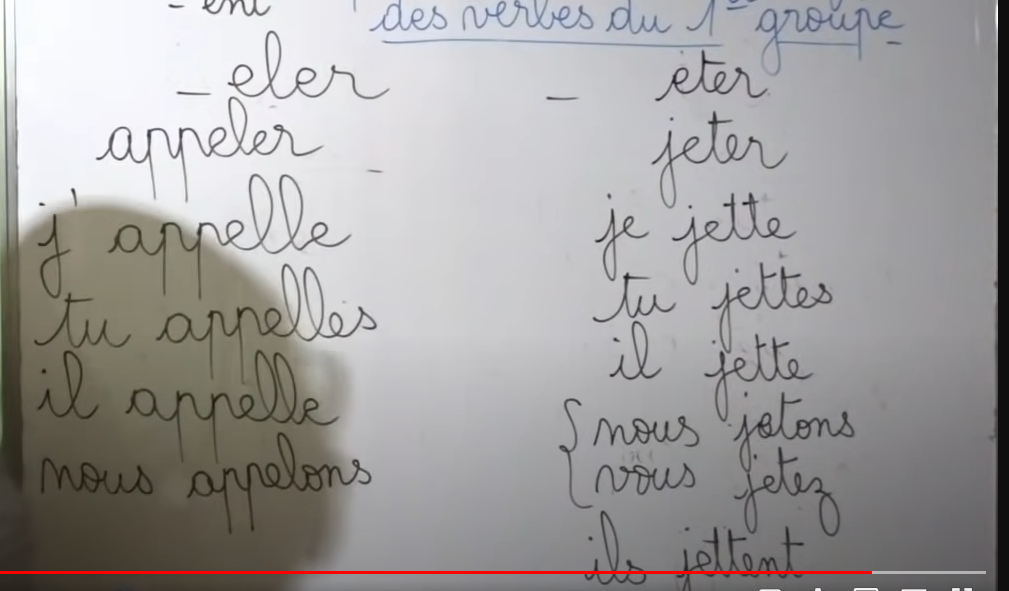 - ent
des verbes du 1er groupe
- eler
appeler
j'appelle
tu appelles
il appelle
nous appelons
- eter
jeter
je jette
tu jettes
il jette
nous jetons
vous jetez
ils jettent